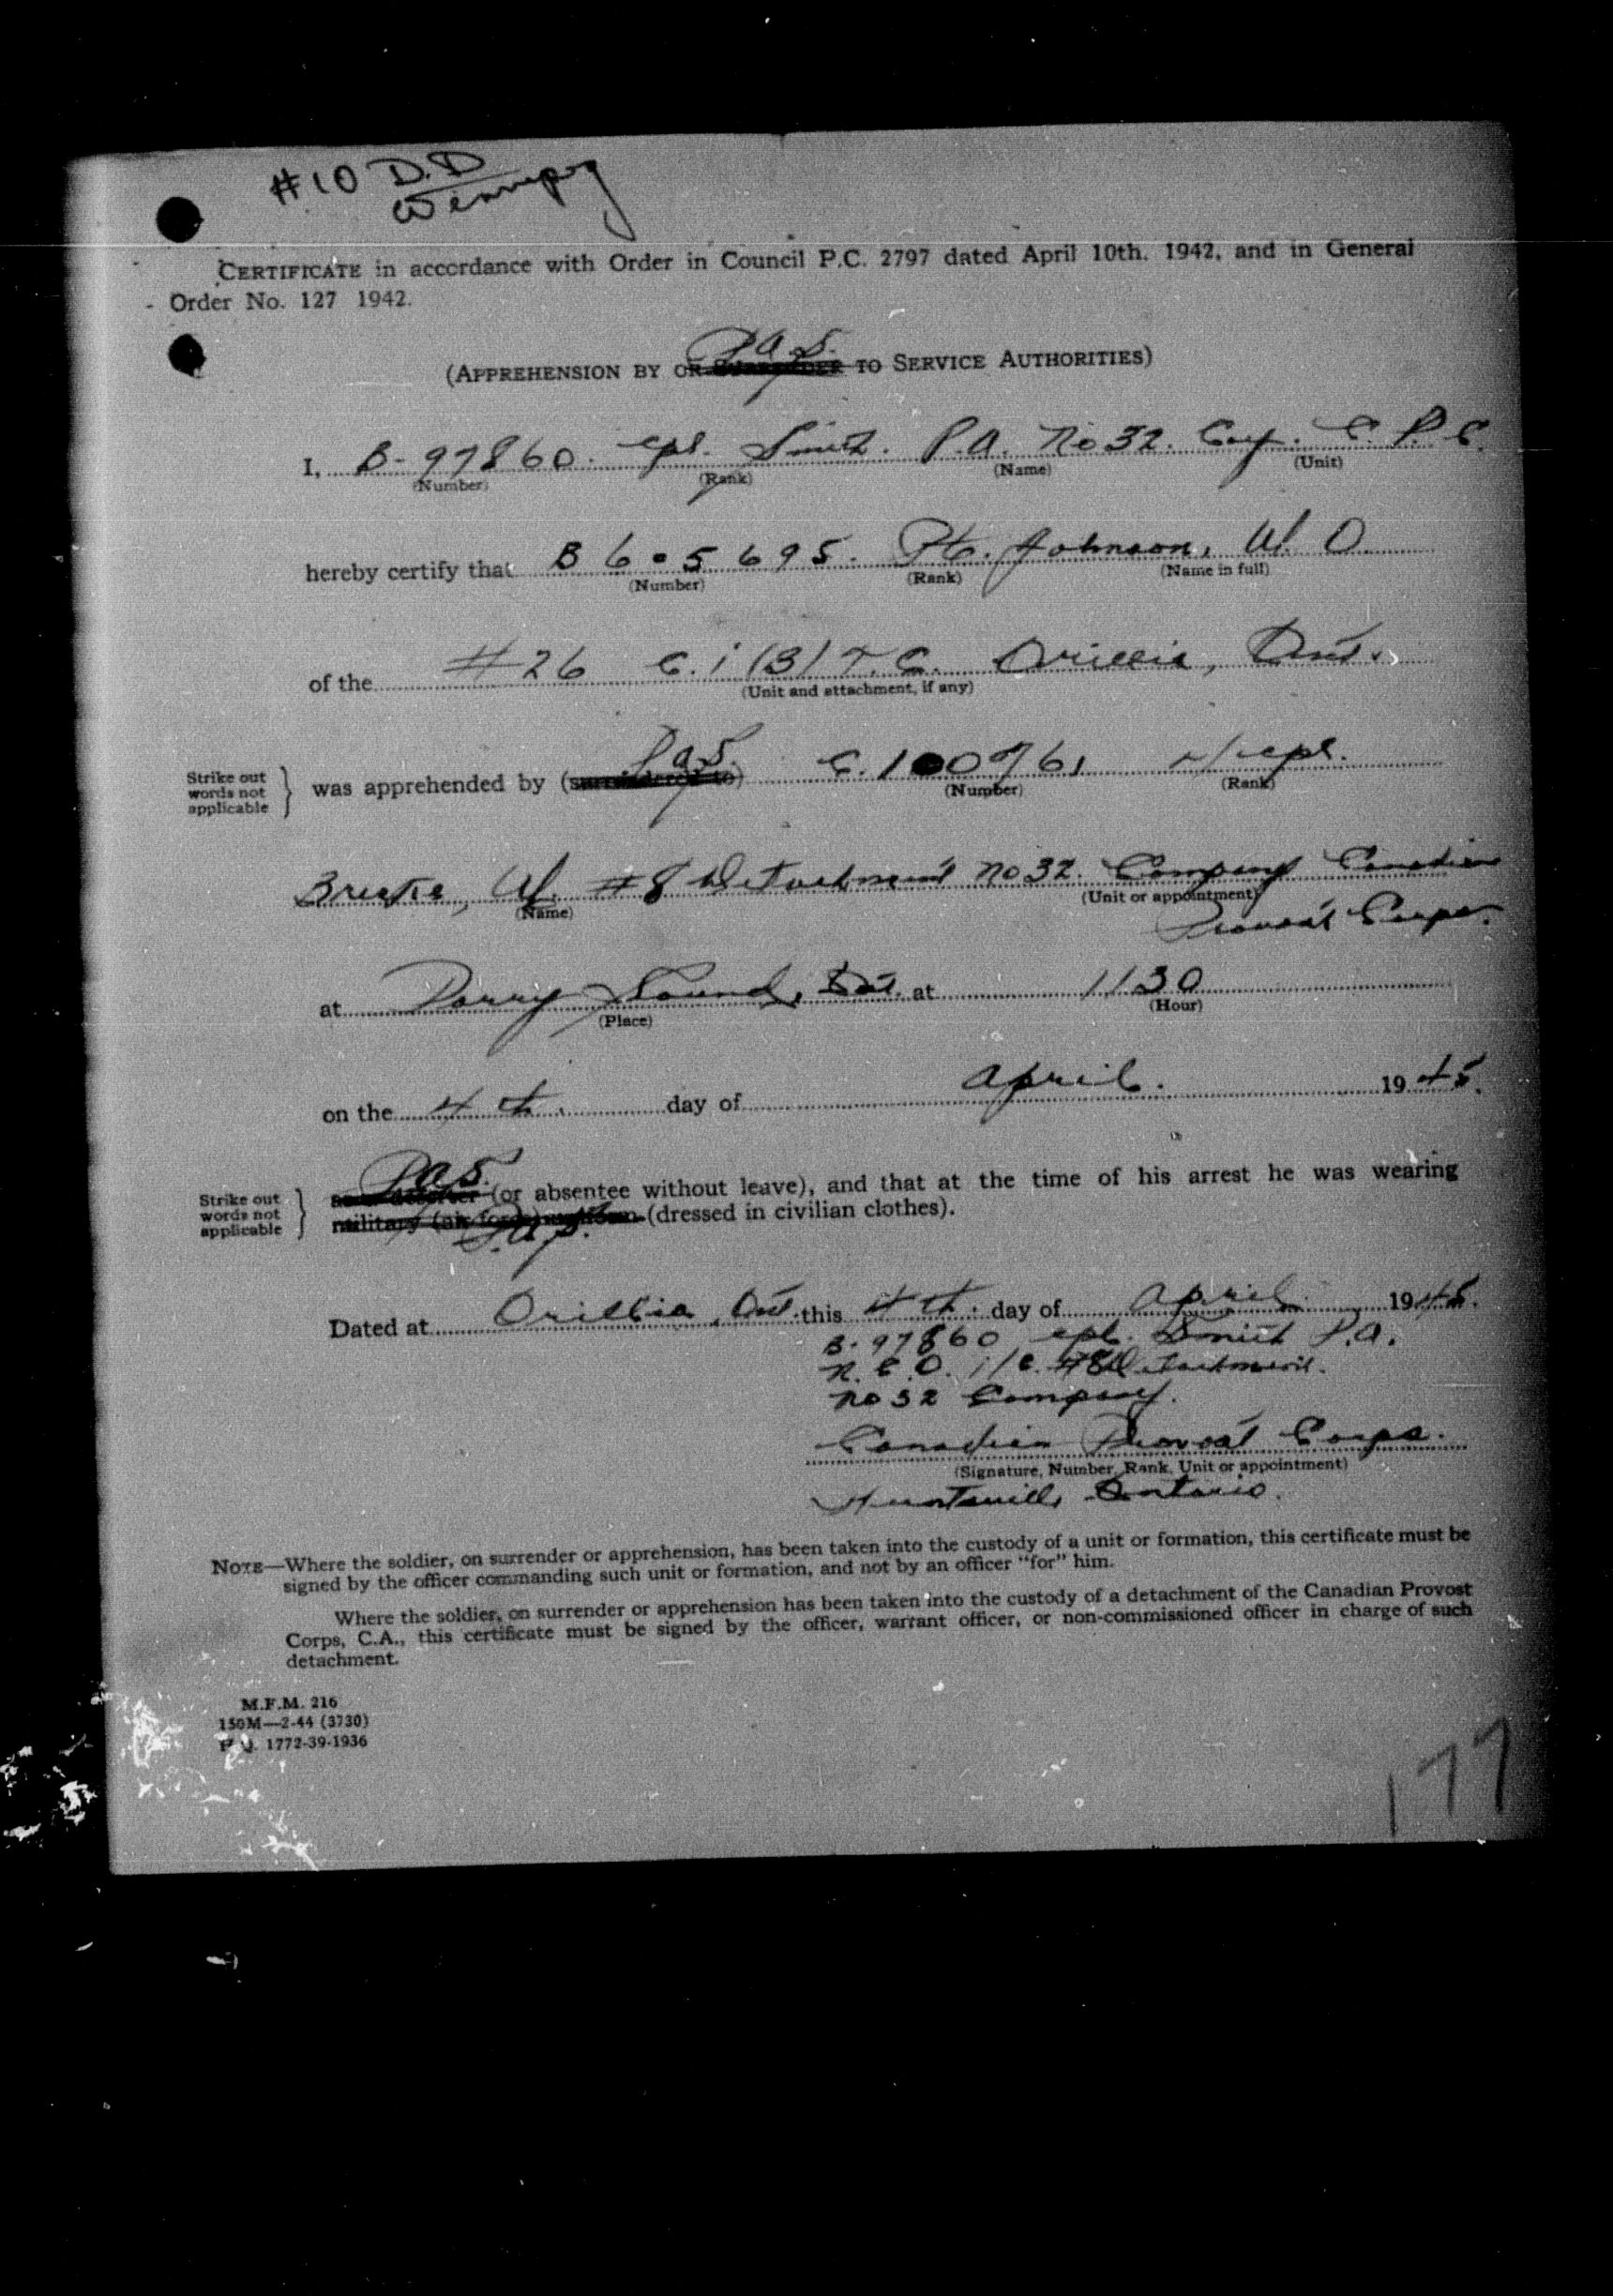 #10 D.D
Winnipeg
CERTIFICATE in accordance with Order in Council P.C. 2797 dated April 10th, 1942, and in General
Order No. 127 1942.
P.A.S.
(APPREHENSION BY OR SURRENDER TO SERVICE AUTHORITIES)
I, B-97860. cpl. Smith. P.A. No 32. Coy. C. P. C.
(Number) (Rank) (Name) (Unit)
hereby certify that B 605695. Pte. Johnson, W. O.
(Number) (Rank) (Name in full)
of the #26 C.i (B) T.C. Orillia, Ont.
(Unit and attachment, if any)
P.A.S.
Strike out words not applicable } was apprehended by (surrendered to) C. 100761 cpl.
(Number) (Rank)
W. #8 Detachment No 32. Company Canadian
(Name) (Unit or appointment)
Provost Corps.
at Parry Sound, Ont. at 1130
(Place) (Hour)
on the 4th. day of April. 1945.
P.A.S.
Strike out words not applicable } as a deserter (or absentee without leave), and that at the time of his arrest he was wearing
military (air force) uniform (dressed in civilian clothes).
P.A.S.
Dated at Orillia, Ont. this 4th. day of April 1945.
B-97860 cpl. Smith P.A.
N.C.O. i/c. #8 Detachment.
No 32 Company.
Canadian Provost Corps.
(Signature, Number, Rank, Unit or appointment)
Huntsville Ontario.
NOTE—Where the soldier, on surrender or apprehension, has been taken into the custody of a unit or formation, this certificate must be
signed by the officer commanding such unit or formation, and not by an officer "for" him.
Where the soldier, on surrender or apprehension has been taken into the custody of a detachment of the Canadian Provost
Corps, C.A., this certificate must be signed by the officer, warrant officer, or non-commissioned officer in charge of such
detachment.
M.F.M. 216
150M—2-44 (3730)
H.Q. 1772-39-1936
177